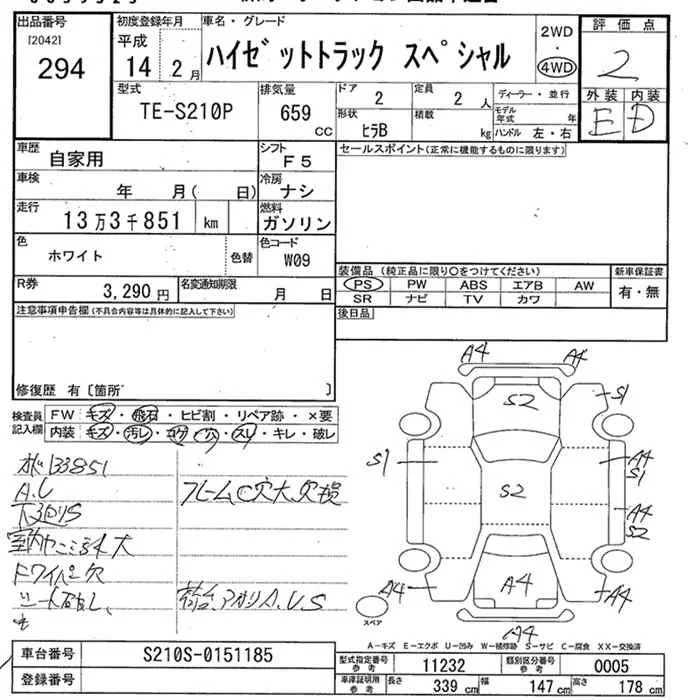 出品番号
[2042]
294
初度登録年月
平成
14 2月
車名・グレード
ハイゼットトラック スペシャル
2WD
4WD
評価点
2
外装 内装
E D
型式
TE-S210P
排気量
659
CC
ドア
2
定員
2 人
ディーラー・並行
モデル年式 年
形状
ヒラB
積載
kg
ハンドル 左・右
車歴
自家用
シフト
F5
セールスポイント(正常に機能するものに限ります)
車検
年 月( 日)
冷房
ナシ
走行
13万3千851 km
燃料
ガソリン
色
ホワイト
色替
色コード
W09
装備品 (純正品に限り○をつけてください)
新車保証書
PS PW ABS エアB AW
有・無
SR ナビ TV カワ
R券
3,290円
名変通知期限
月 日
後日品
注意事項申告欄(不具合内容等は具体的に記入して下さい)
修復歴 有 〔箇所 〕
検査員記入欄
FW キズ・飛石・ヒビ割・リペア跡・×要
内装 キズ・汚レ・コゲ・穴・スレ・キレ・破レ
133851
A.C
フレームC穴大欠損
下回りS
大
ドワイパー欠
荷台、アオリA.U.S
A4
A4
S2
S1
S1
A4
S1
S2
A4
S2
A4
A4
A4
A4
スペア
A-キズ E-エクボ U-凹み W-補修跡 S-サビ C-腐食 XX-交換済
車台番号
S210S-0151185
型式指定番号
参考
11232
類別区分番号
参考
0005
登録番号
車庫証明用
参考
長さ
339 cm
幅
147 cm
高さ
178 cm